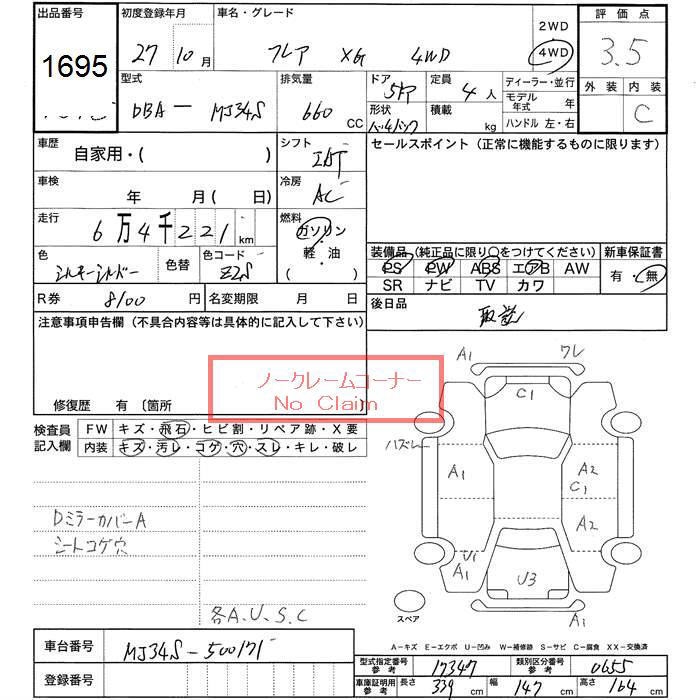 出品番号 初度登録年月 車名・グレード 2WD 評価点
1695 27 10月 フレア XG 4WD 4WD 3.5
型式 排気量 ドア 定員 ディーラー・並行 外装 内装
DBA ー MJ34S 660 CC 5ドア 4人 モデル年式 年 C
形状 積載 kg ハンドル 左・右
ハッチバック
車歴 自家用・( ) シフト IAT セールスポイント(正常に機能するものに限ります)
車検 年 月(日) 冷房 AC
走行 6万4千221km 燃料 ガソリン・軽・油( )
装備品(純正品に限り○をつけてください) 新車保証書
色 シルキーシルバー 色替 色コード Z2S
PS PW ABS エアB AW 有・無
SR ナビ TV カワ
R券 8100円 名変期限 月 日 後日品 取説
注意事項申告欄(不具合内容等は具体的に記入して下さい)
ノークレームコーナー
No Claim
修復歴 有〔箇所
検査員記入欄 FW キズ・飛石・ヒビ割・リペア跡・X要
内装 キズ・汚レ・コゲ・穴・スレ・キレ・破レ
A1 ワレ
C1
ハズレ
A1 A2
C1
A2
U1
A1 U3
A1
スペア
DミラーカバーA
シートコゲ穴
各A.U.S.C
A-キズ E-エクボ U-凹み W-補修跡 S-サビ C-腐食 XX-交換済
車台番号 MJ34S-500171
型式指定番号 参考 17347 類別区分番号 参考 0655
登録番号
車庫証明用 参考 長さ 339cm 幅 147cm 高さ 164cm